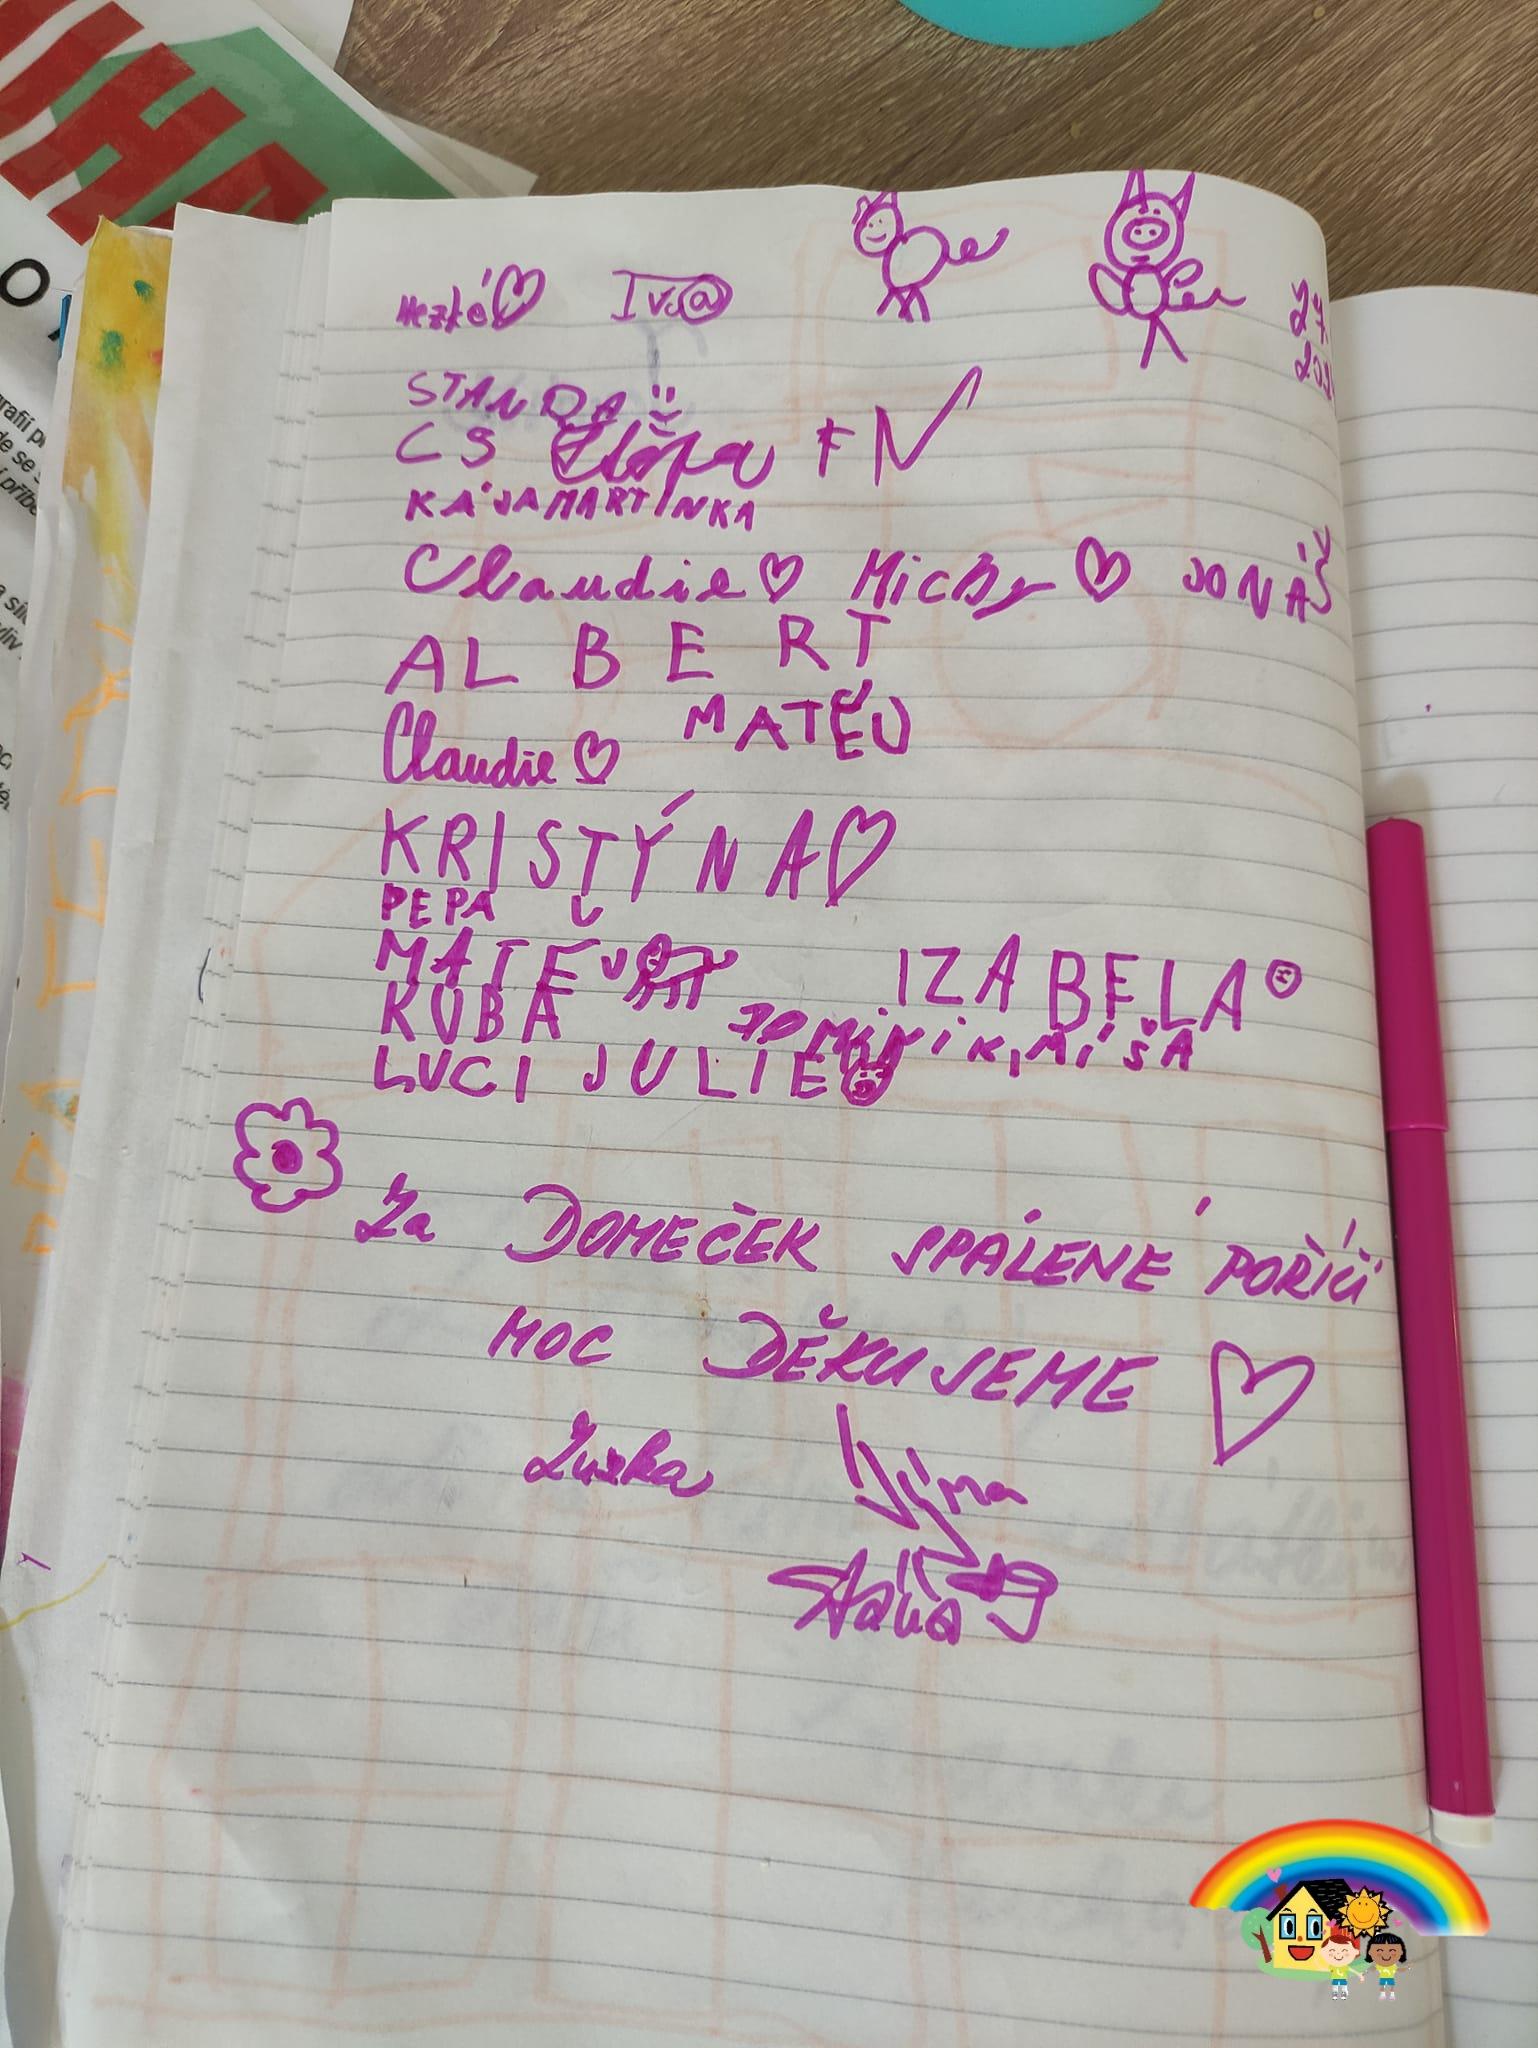 Hezké Iv@
27.
STANDA
CS Štěpa FN
KÁJA MARTINKA
Claudie Michy JONÁŠ
ALBERT
MATĚJ
Claudie
KRISTÝNA
PEPA
MATĚJ IZABELA
KUBA DOMINIK, MÍŠA
LUCI JULIE
Za DOMEČEK SPÁLENÉ POŘÍČÍ
MOC DĚKUJEME
Zuzka
Stáňa